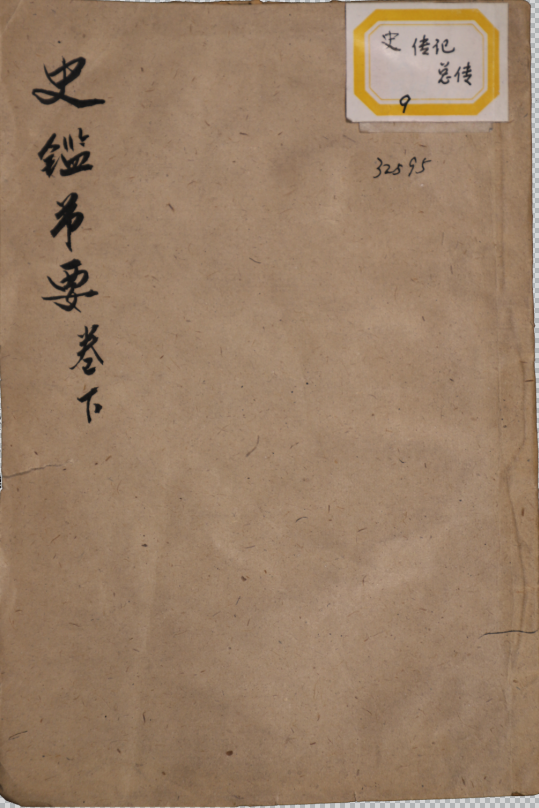 史 传记
总传
9
32595
史鑑节要卷下